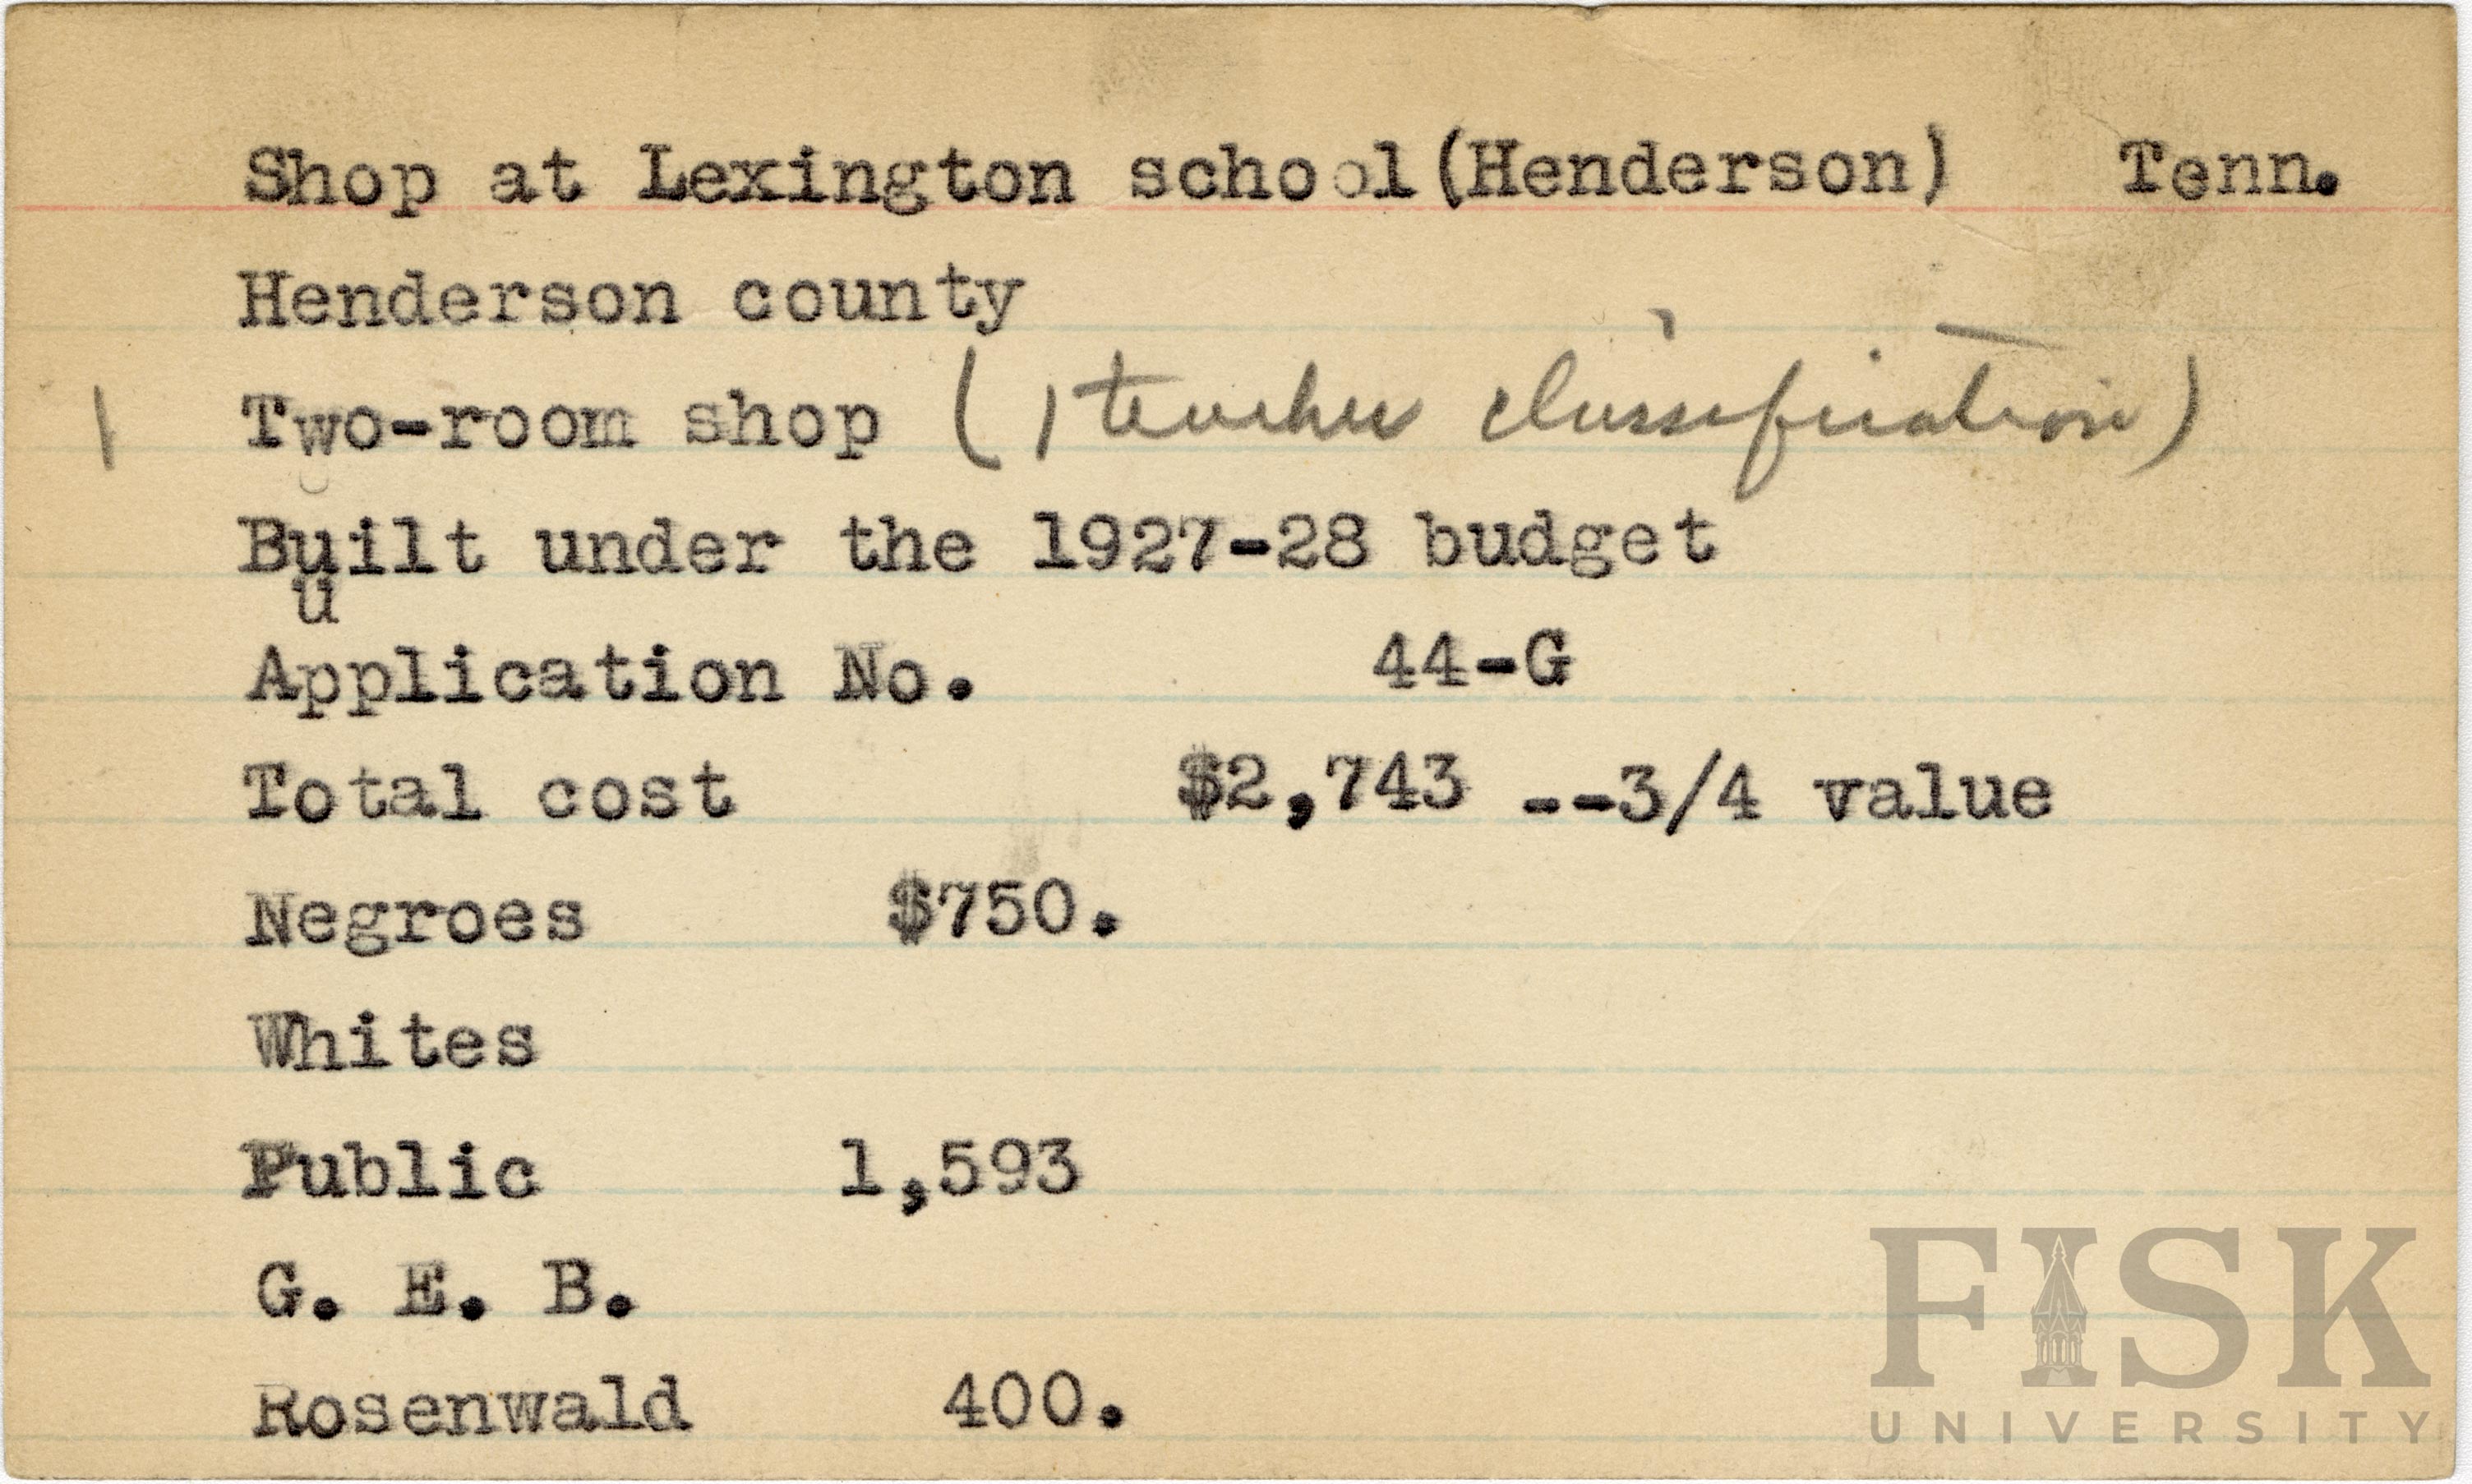 Shop at Lexington school(Henderson) Tenn.
Henderson county
1 Two-room shop (1 teacher classification)
Built under the 1927-28 budget
u
Application No. 44-G
Total cost $2,743 --3/4 value
Negroes $750.
Whites
Public 1,593
G. E. B.
Rosenwald 400.
FISK
UNIVERSITY